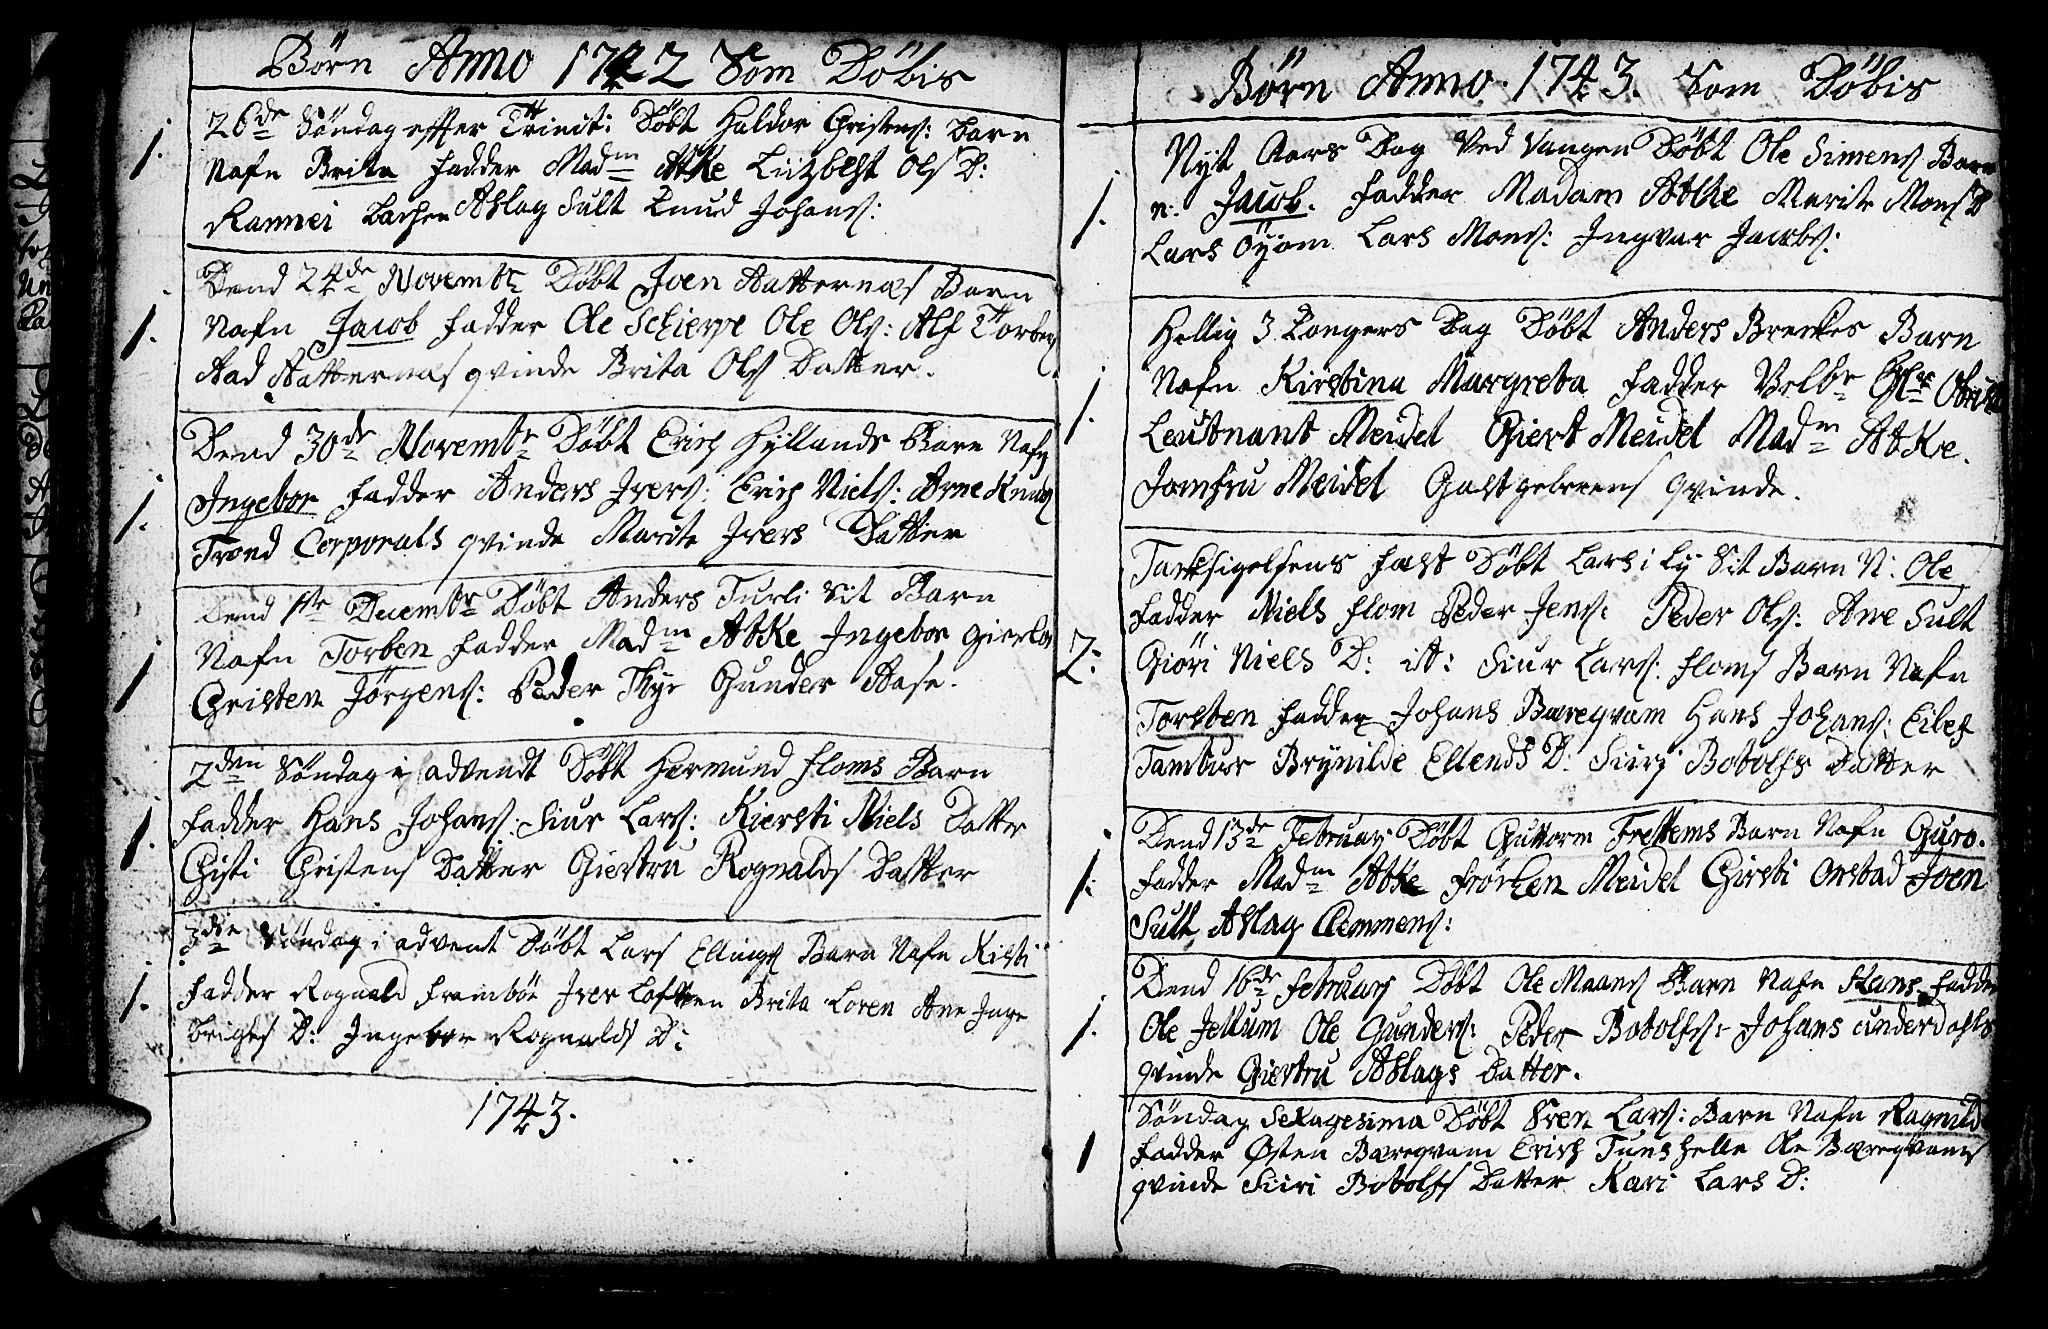 Børn Anno 1742 Som Döbis
1. 26de Söndag effter Trinit: Döbt Haldor Christens: Barn
Nafn Brita Fadder Madm Atke Ols D:
Rannei Bachen Aslag Sult Knud Johans:
1. Dend 24de Novembr Döbt Joen Aatternæs Barn
Nafn Jacob Fadder Ole Schierpe Ole Ols: Alf Torbens
Aad Aatternæs qvinde Brita Ols Datter.
1. Dend 30de Novembr Döbt Erich Hyllands Barn Nafn
Ingebor Fadder Anders Ivers: Erich Niels: Arne Knuds
Trond Corporals qvinde Marite Ivers Datter
1 Dend 1te Decembr Döbt Anders Turli Sit Barn
Nafn Torben Fadder Madm Atke Ingebor
Christen Jörgens: Peder Thye Gunder Aase.
1. 2den Söndag i advendt Döbt Hermund Floms Barn
Fadder Hans Johans: Siur Lars: Kiersti Niels Datter
Gisti Christens Datter Giertru Rognalds Datter
1. 3die Söndag i advent Döbt Lars Ellings Barn Nafn Kisti
Fadder Rognald Frambör Iver Loften Brita Loren Ane Inge
brigts D: Ingebor Rognalds D:
1743.
Börn Anno 1743. Som Döbis
1. Nyt Aars Dag Ved Vangen Döbt Ole Simens Barn
n: Jacob. Fadder Madam Atke Marite Mons D
Lars Öyom Lars Mons: Ingvar Jacobs:
1. Hellig 3 Kongers Dag Döbt Anders Breckes Barn
Nafn Kirstina Margreta Fadder Velbr Hr Obrist
Leutnant Meidel Giert Meidel Madm Atke.
Jomfru Meidel Gastgeberens qvinde.
2: Tacksigelsens Fæst Döbt Lars i Ly Sit Barn N: Ole
Fadder Niels Flom Peder Jens: Peder Ols: Ane Sult
Giöri Niels D: it: Siur Lars: Floms Barn Nafn
Torsten Fadder Johans Bæreqvam Hans Johans: Eilef
Tambur Brynilde Ellends D: Siiri Botolfs Datter
1: Dend 13de Februar Döbt Guttorm Frettems Barn Nafn Guro.
Fadder Madm Atke Fröchen Meidel Girsti Onstad Joen
Sult Aslag Clemmens:
1. Dend 16de Februari Döbt Ole Maans Barn Nafn Hans Fadder
Ole Jellum Ole Gunders: Peder Botolfs: Johans Underdahls
qvinde Giertru Aslags Datter.
1 Söndag Sexagesima Döbt Sven Lars: Barn Nafn Ragnild
Fadder Østen Bæreqvam Erich Tunshelle Ole Bæreqvams
qvinde Siiri Botolfs Datter Kari Lars D: